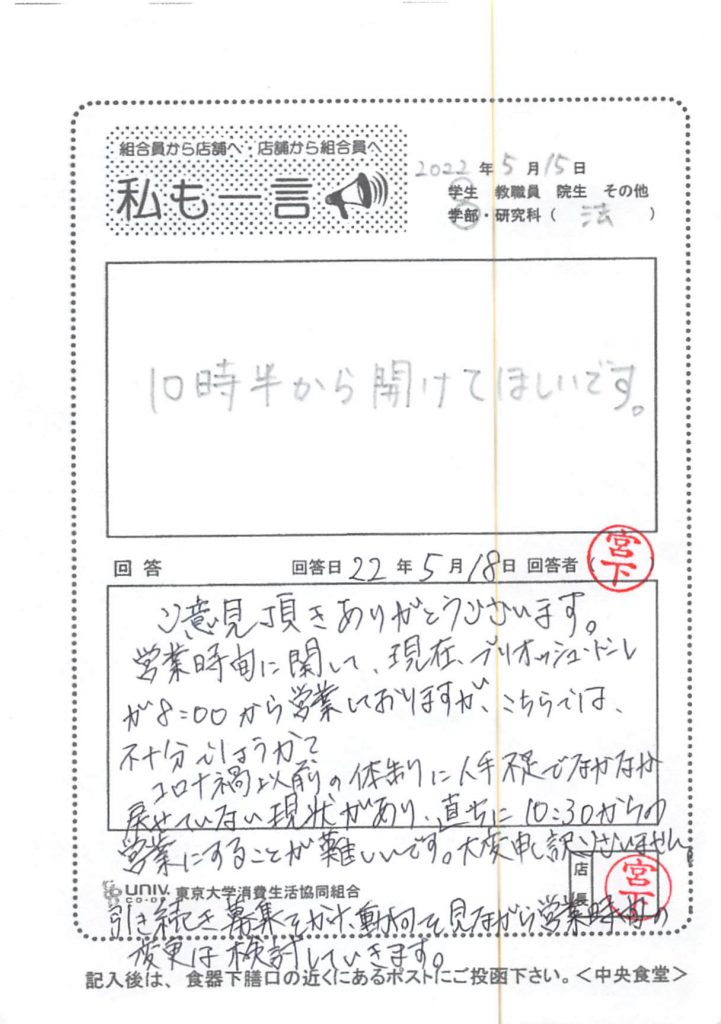 組合員から店舗へ・店舗から組合員へ
私も一言
2022年5月15日
学生 教職員 院生 その他
学部・研究科（ 法 ）
10時半から開けてほしいです。
回答 回答日 22年5月18日 回答者（宮下）
ご意見頂きありがとうございます。
営業時間に関して、現在、ブリオッシュ・ドーレ
が8:00から営業しておりますが、こちらでは、
不十分でしょうか?
コロナ禍以前の体制に人手不足でなかなか
戻せていない現状があり、直ちに10:30からの
営業にすることが難しいです。大変申し訳ございません。
店長 宮下
UNIV. CO-OP 東京大学消費生活協同組合
引き続き募集をかけ、動向を見ながら営業時間の
変更は検討していきます。
記入後は、食器下膳口の近くにあるポストにご投函下さい。＜中央食堂＞